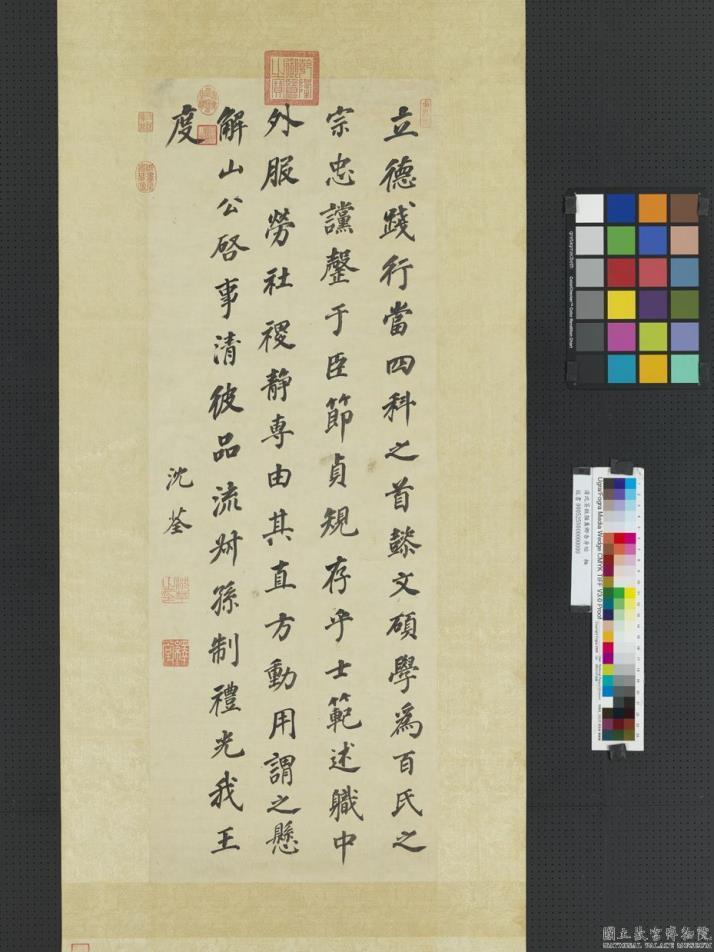 立德踐行當四科之首懿文碩學為百氏之
宗忠讜罄于臣節貞規存乎士範述職中
外服勞社稷靜專由其直方動用謂之懸
解山公啓事清彼品流叔孫制禮光我王
度
沈荃
乾隆御覽之寶
國立故宮博物院
NATIONAL PALACE MUSEUM